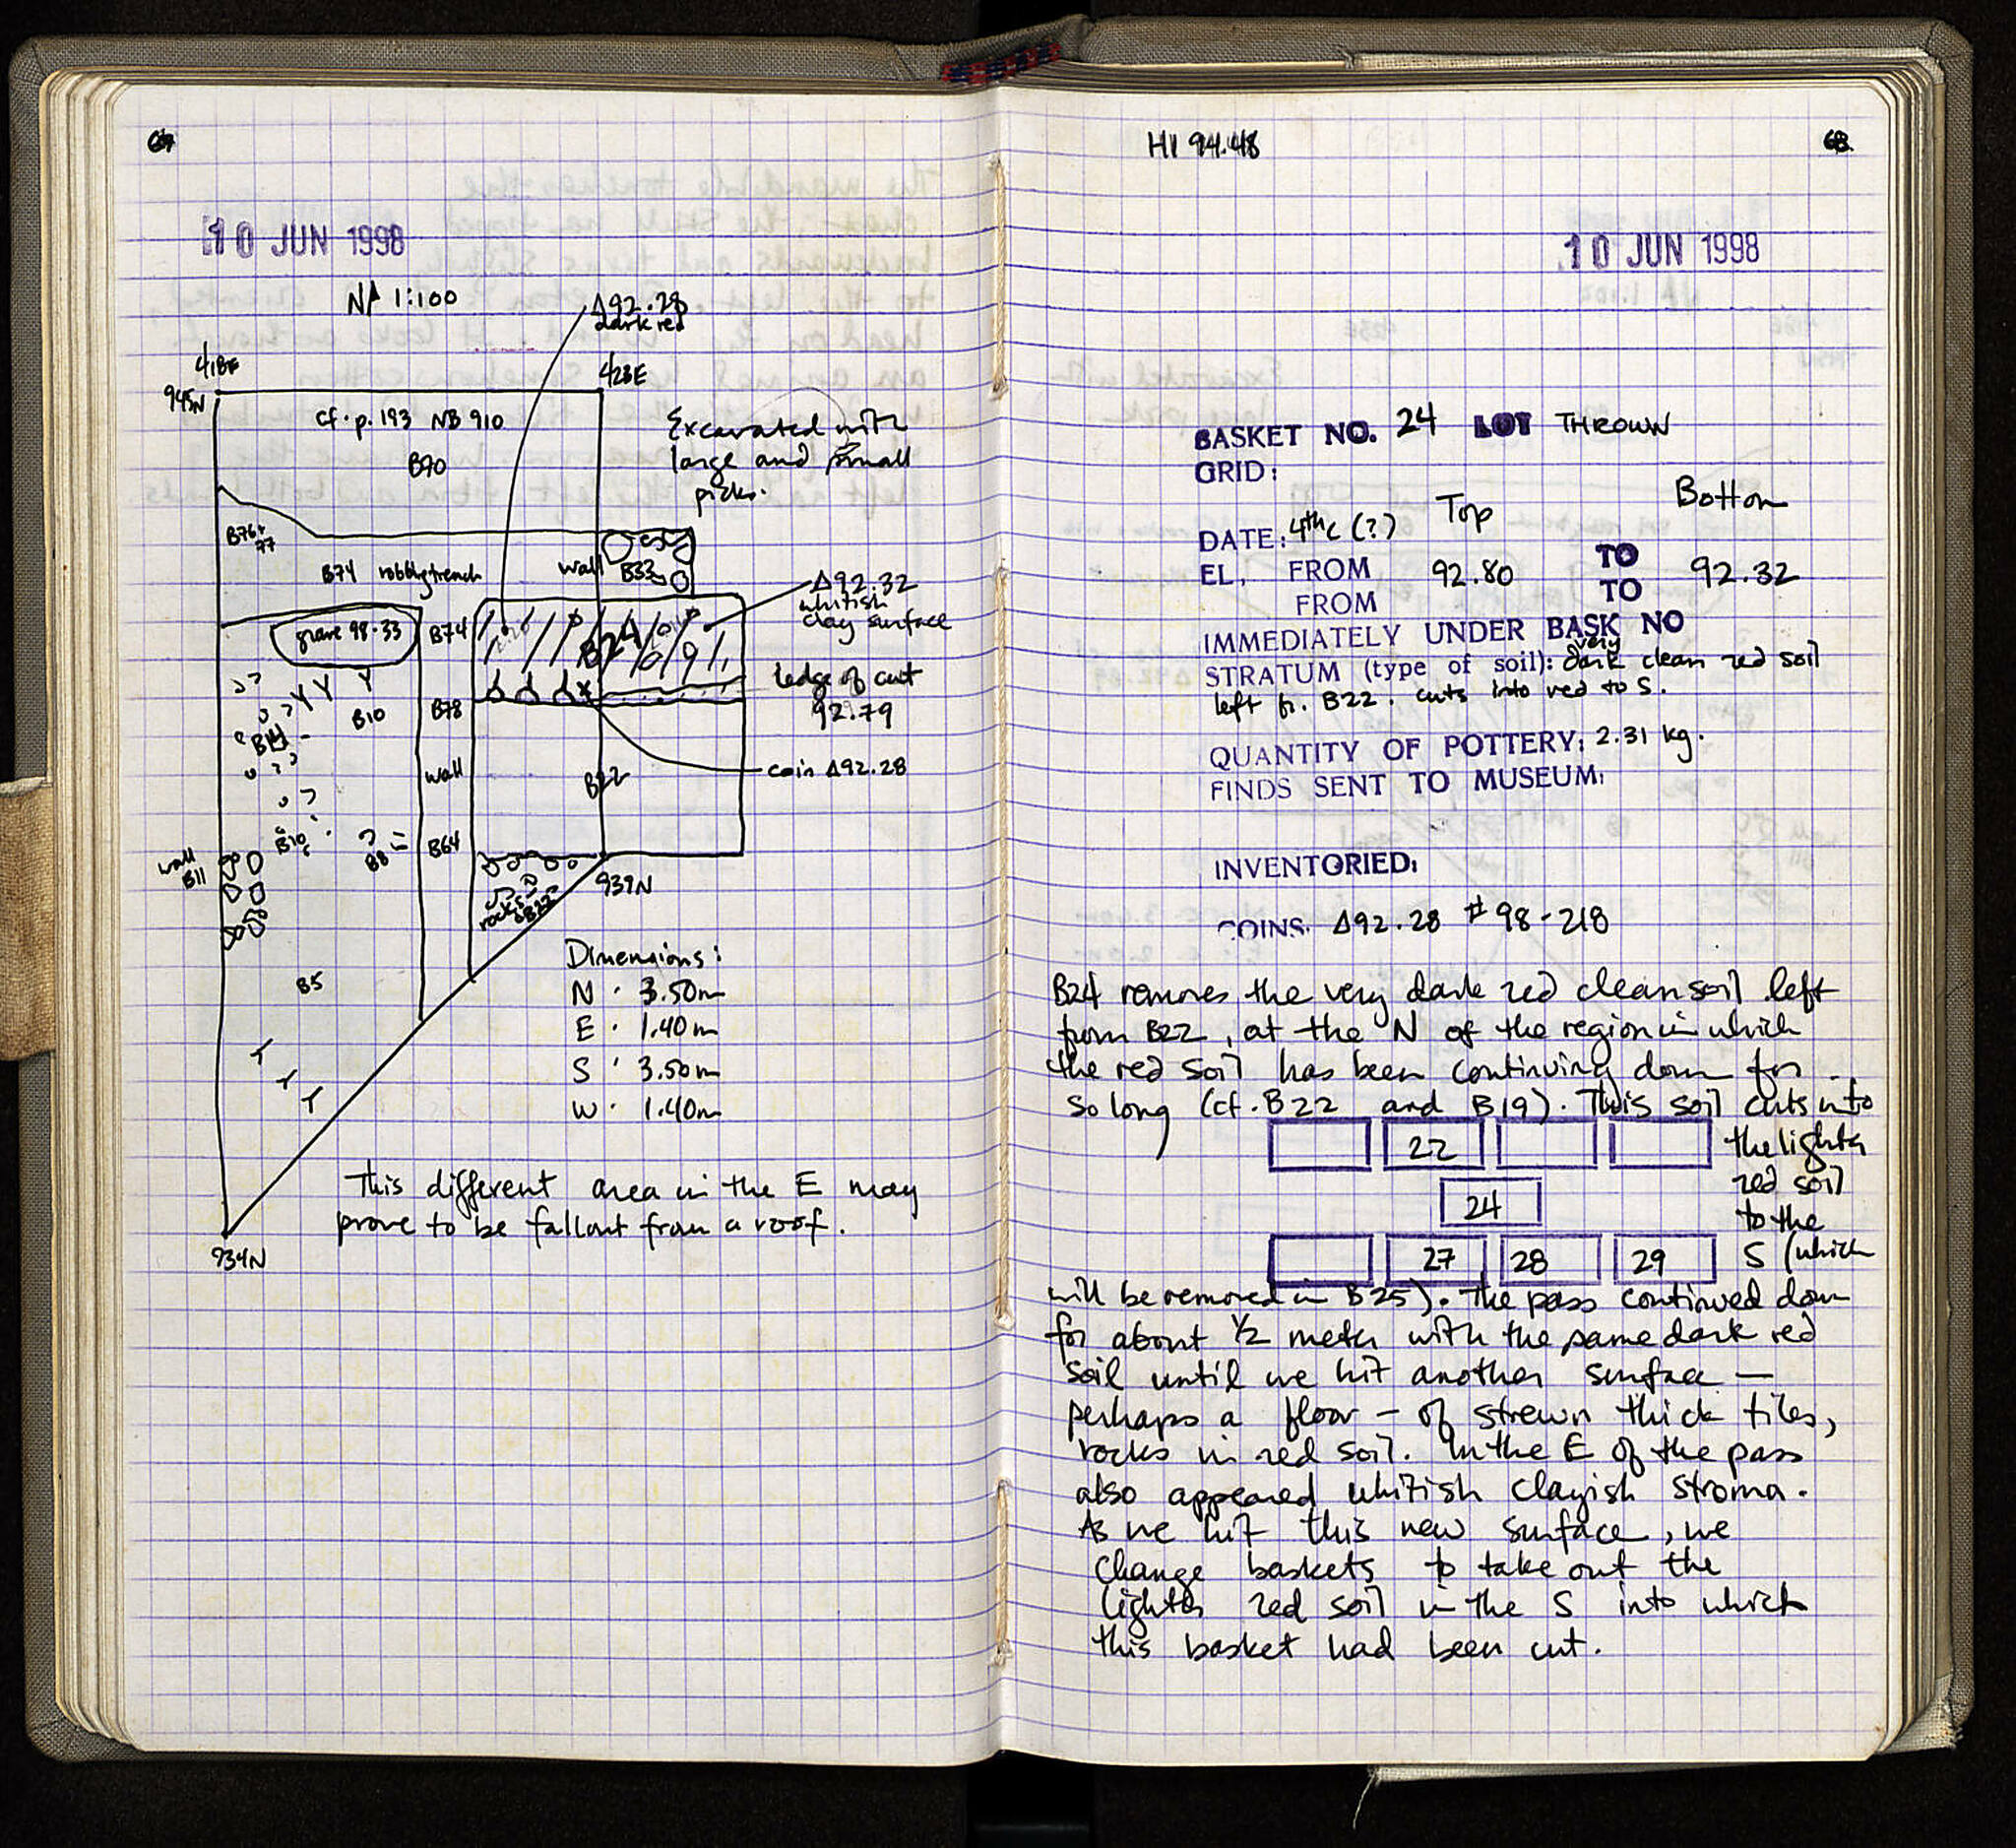 10 JUN 1998
N 1:100
Δ92.28
dark red
418E
428E
945N
cf. p. 193 NB 910
B90
Excavated with
large and small
picks.
B76+
77
B74 robbing trench
wall B33
Δ92.32
whitish
clay surface
grave 98-33
B74
B24
ledge of cut
92.79
B78
B10
B14
wall
B22
coin Δ92.28
B10
B8
B64
wall
B11
939N
rocks
B22
Dimensions:
N . 3.50m
E . 1.40m
S . 3.50m
W . 1.40m
B5
This different area in the E may
prove to be fallout from a roof.
934N
H1 94.48
68
10 JUN 1998
BASKET NO. 24 LOT THROWN
GRID:
Top Bottom
DATE: 4th c (?)
EL. FROM 92.80 TO 92.32
FROM TO
IMMEDIATELY UNDER BASK NO
STRATUM (type of soil): very dark clean red soil
left fr. B22. cuts into red to S.
QUANTITY OF POTTERY: 2.31 kg.
FINDS SENT TO MUSEUM:
INVENTORIED:
COINS. Δ92.28 #98-218
B24 removes the very dark red clean soil left
from B22, at the N of the region in which
the red soil has been continuing down for
so long (cf. B22 and B19). This soil cuts into
22
the lighter
24
red soil
to the
27 28 29
S (which
will be removed in B25). The pass continued down
for about 1/2 meter with the same dark red
soil until we hit another surface —
perhaps a floor - of strewn thick tiles,
rocks in red soil. In the E of the pass
also appeared whitish clayish stroma.
As we hit this new surface, we
change baskets to take out the
lighter red soil in the S into which
this basket had been cut.